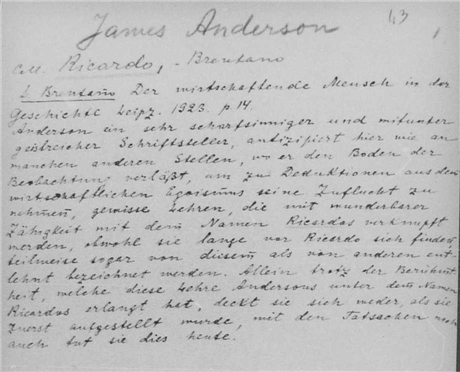 James Anderson
43
c.u. Ricardo, - Brentano
L. Brentano Der wirtschaftende Mensch in der
Geschichte Leipz. 1923. p. 14.
Anderson ein sehr scharfsinniger und mitunter
geistreicher Schriftsteller, antizipiert hier wie an
manchen anderen Stellen, wo er den Boden der
Beobachtung verläßt, um zu Deduktionen aus dem
wirtschaftlichen Egoismus seine Zuflucht zu
nehmen, gewisse Lehren, die mit wunderbarer
Zähigkeit mit dem Namen Ricardos verknüpft
werden, obwohl sie lange vor Ricardo sich finden,
teilweise sogar von diesem als von anderen ent-
lehnt bezeichnet werden. Allein trotz der Berühmt
heit, welche diese Lehre Andersons unter dem Namen
Ricardos erlangt hat, deckt sie sich weder, als sie
zuerst aufgestellt wurde, mit den Tatsachen noch
auch tut sie dies heute.